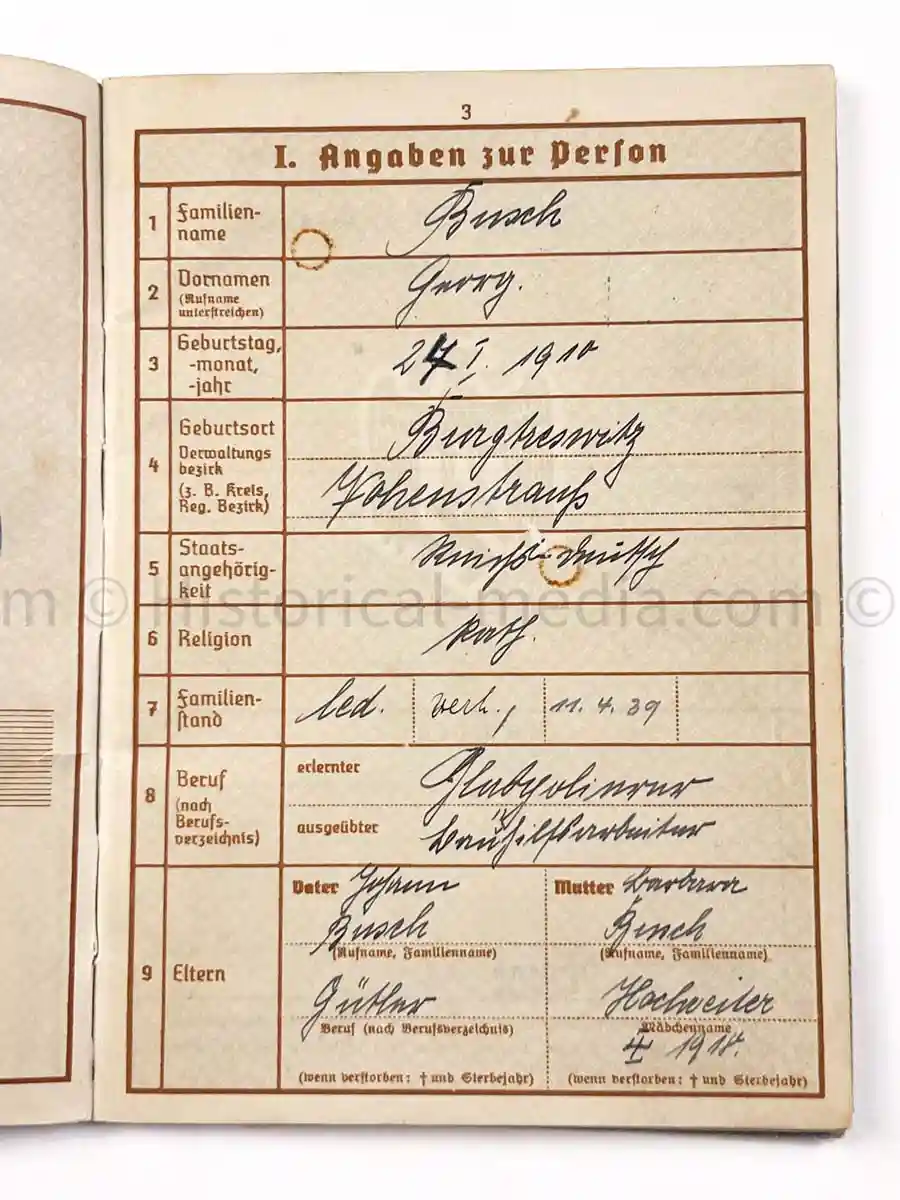 3
I. Angaben zur Person
1 Familien-
name
Busch
2 Vornamen
(Rufname
unterstreichen)
Georg.
3 Geburtstag,
-monat,
-jahr
24 I. 1910
4 Geburtsort
Verwaltungs
bezirk
(z. B. Kreis,
Reg. Bezirk)
Burgtreswitz
Vohenstrauß
5 Staats-
angehörig-
keit
Reichs-deutsch
om © Historical-media.com ©
6 Religion
kath.
7 Familien-
stand
led. verh., 11. 4. 39
8 Beruf
(nach
Berufs-
verzeichnis)
erlernter Glaspolierer
ausgeübter Bauhilfsarbeiter
9 Eltern
Vater Johann
Busch
(Rufname, Familienname)
Gütler
Beruf (nach Berufsverzeichnis)
(wenn verstorben: † und Sterbejahr)
Mutter Barbara
Busch
(Rufname, Familienname)
Hochweiter
Mädchenname
1918.
(wenn verstorben: † und Sterbejahr)